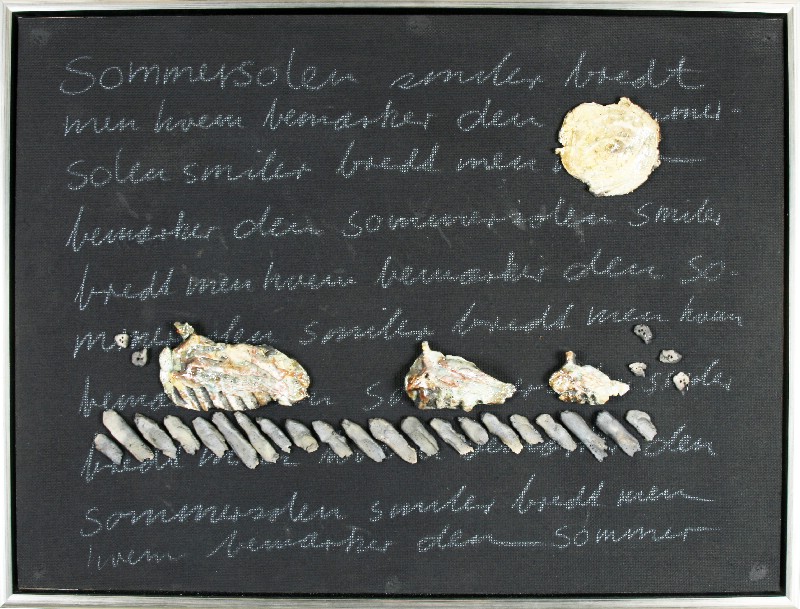 Sommersolen smiler bredt
men hvem bemærker den mmer-
solen smiler bredt men
bemærker den sommersolen smiler
bredt men hvem bemærker den so-
mmersolen smiler bredt men hvem
den so smiler
bredt den
sommersolen smiler bredt men
hvem bemærker den sommer